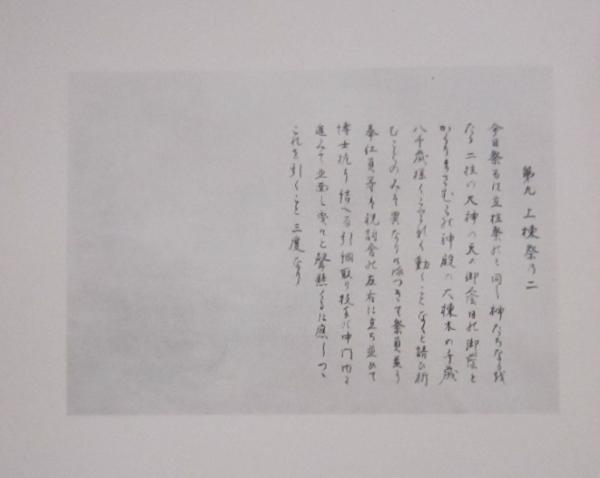 第九 上棟祭の二
今日祭るは立柱祭のと同し神たちなる我
たる二柱の大神の天の御蔭日の御蔭と
かくりまさむ此神殿の大棟木の千歳
八千歳揺く 動くことなくと請ひ祈
むことのみそ異なり つきて祭員並
奉仕員等は祝詞舎の左右に立ち並みて
博士杭り結へる引綱取り技 に中門内に
進みて正面し 々と聲懸くるに應しつつ
これを引くこと三度なり